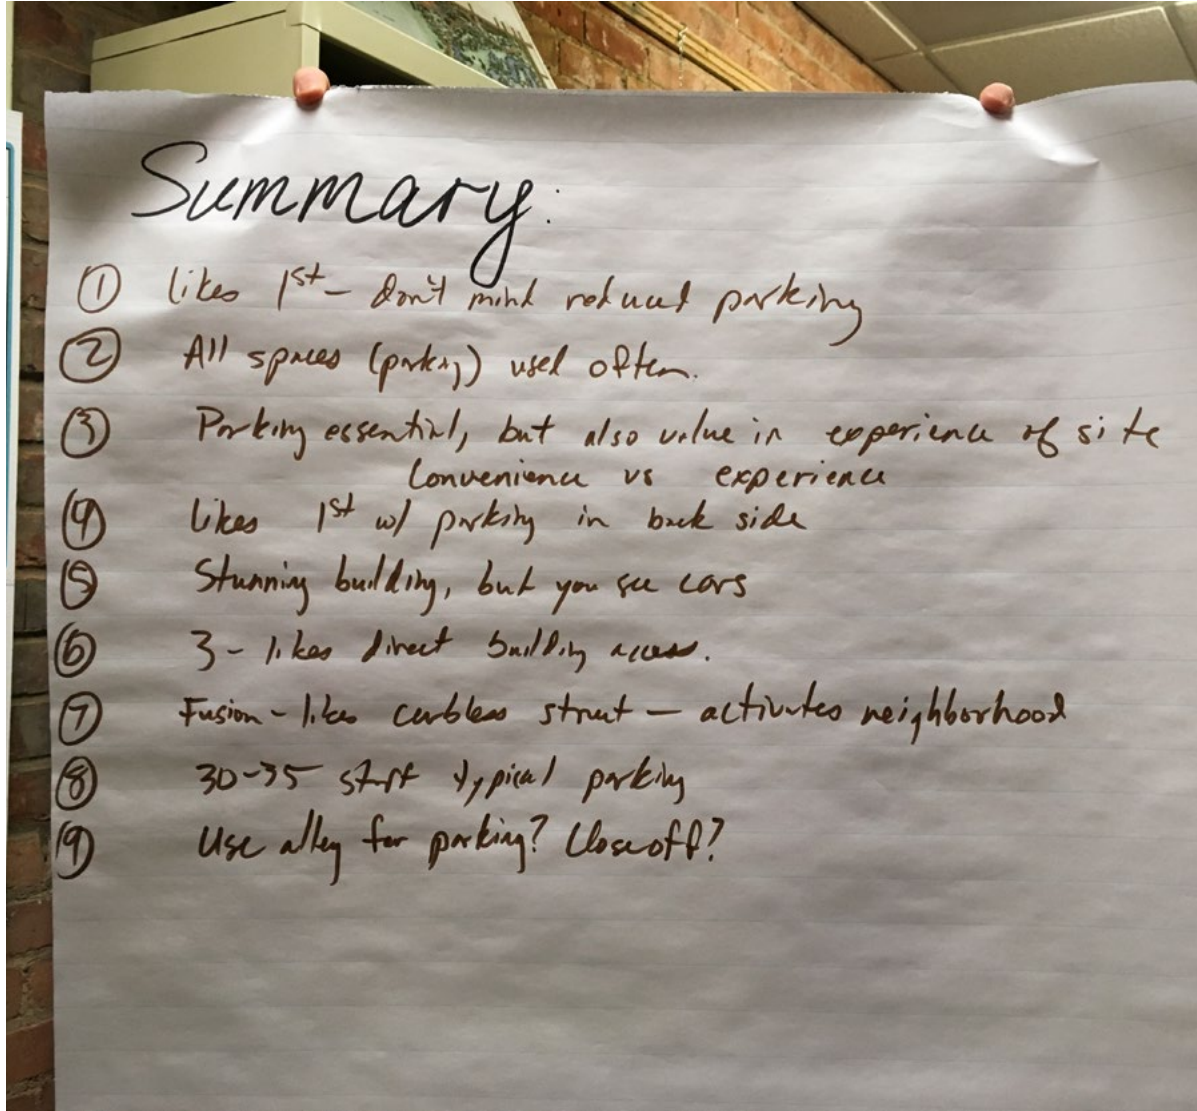 Summary:
① likes 1st - don't mind reduced parking
② All spaces (parking) used often.
③ Parking essential, but also value in experience of site
Convenience vs experience
④ likes 1st w/ parking in back side
⑤ Stunning building, but you see cars
⑥ 3 - likes direct building access.
⑦ Fusion - likes curbless street - activates neighborhood
⑧ 30-35 staff typical parking
⑨ Use alley for parking? Close off?